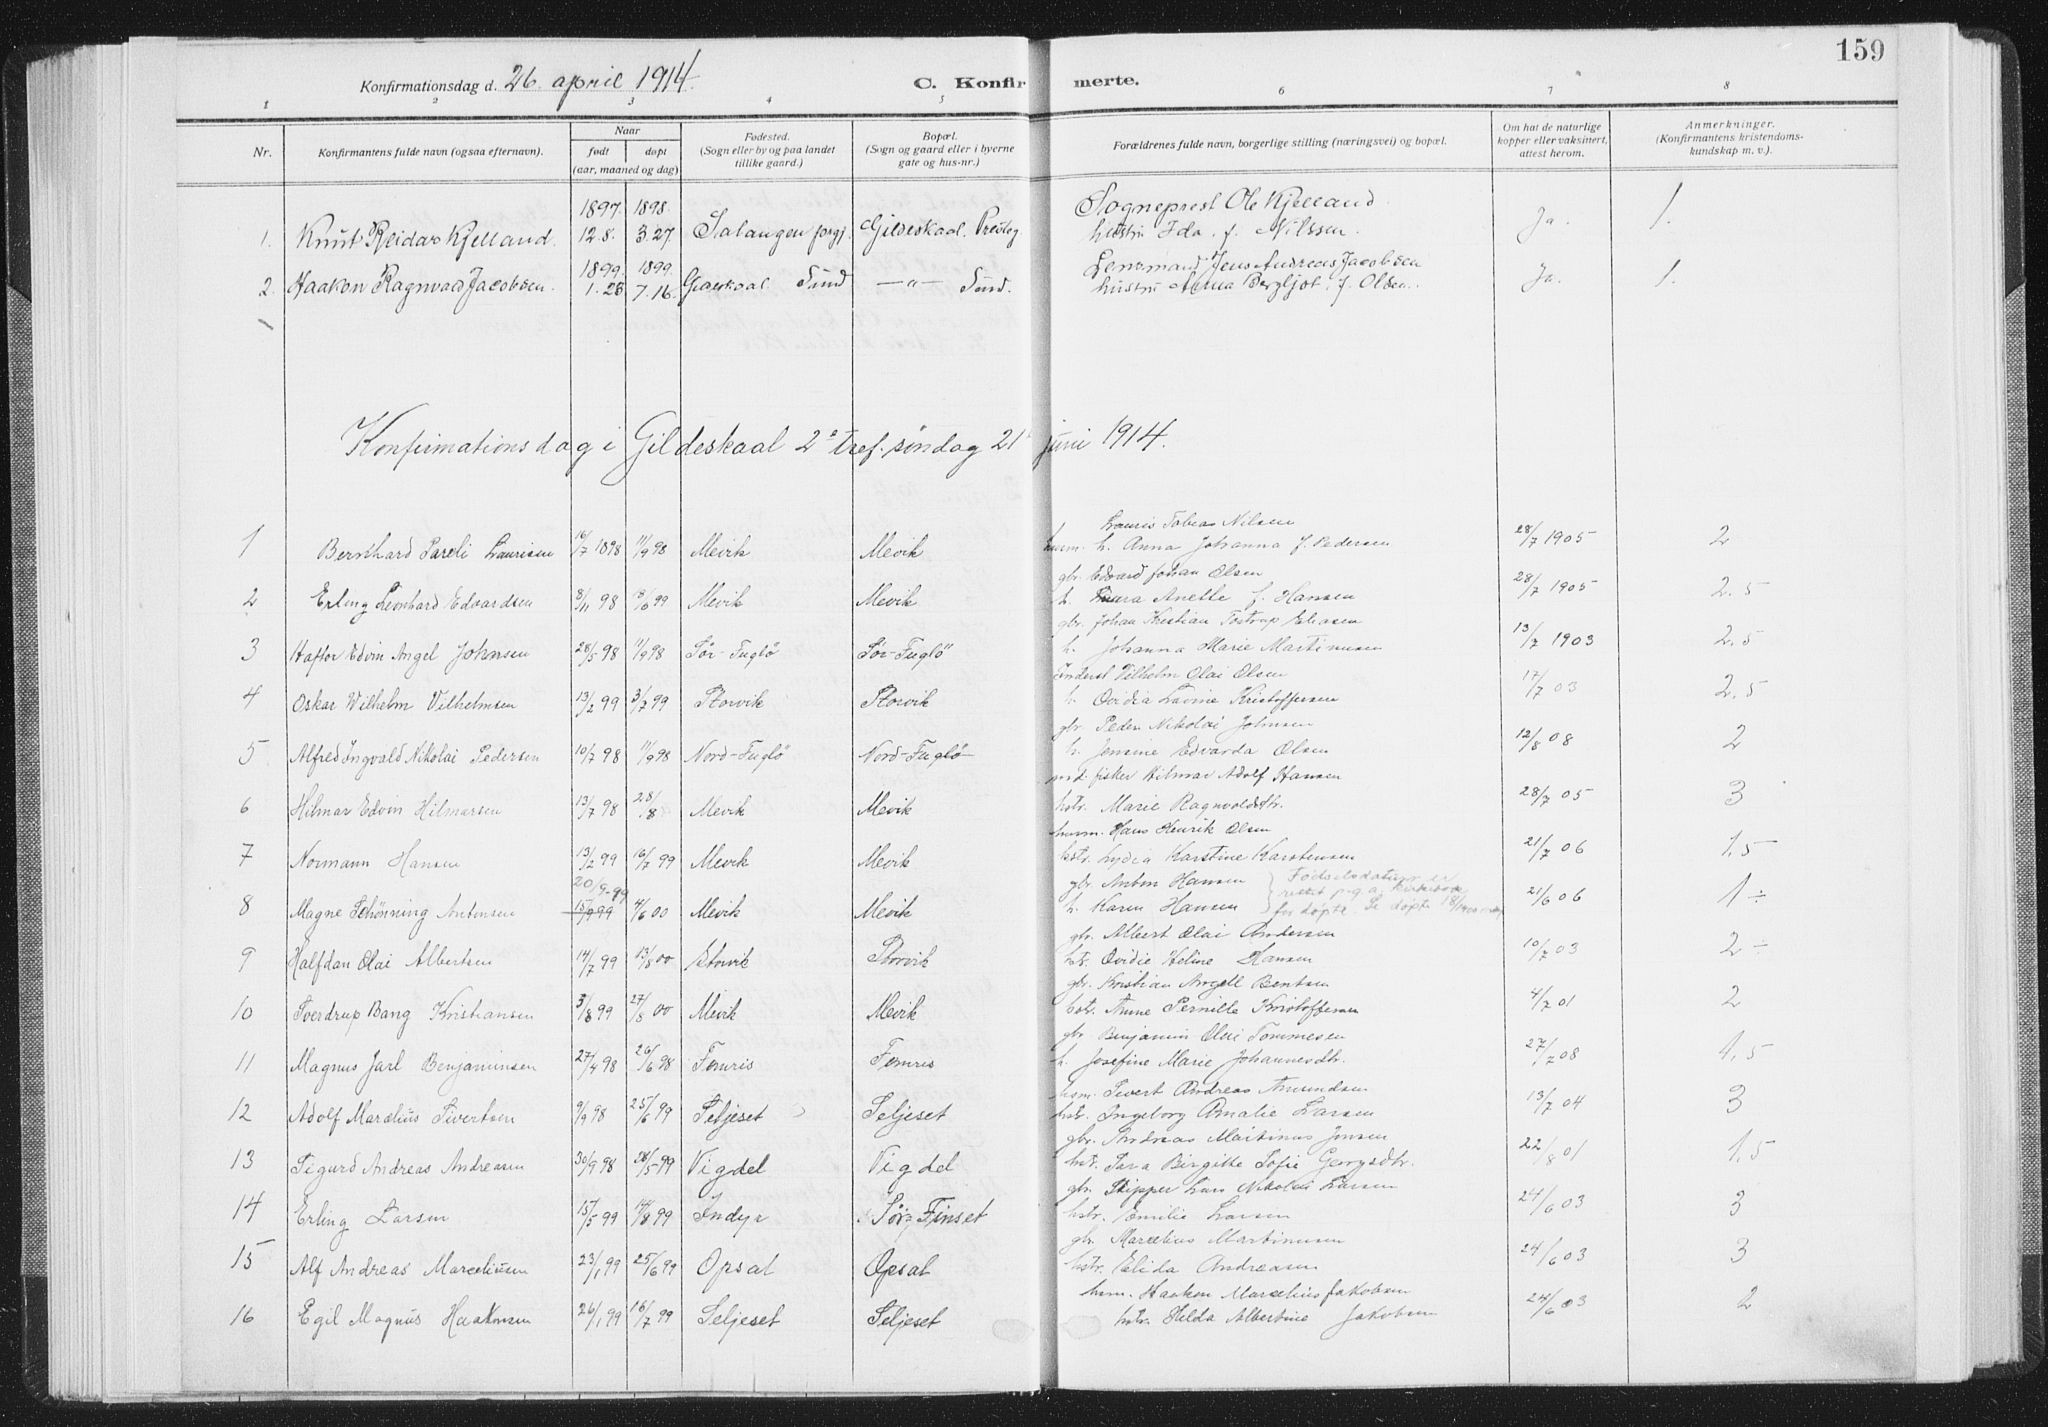 159
Konfirmationsdag d. 26. april 1914.
C. Konfir merte.
1 2 3 4 5 6 7 8
Nr. Konfirmantens fulde navn (ogsaa efternavn). Naar født døpt (aar, maaned og dag) Fødested. (Sogn eller by og paa landet tillike gaard.) Bopæl. (Sogn og gaard eller i byerne gate og hus-nr.) Forældrenes fulde navn, borgerlige stilling (næringsvei) og bopæl. Om hat de naturlige kopper eller vaksinert, attest herom. Anmerkninger. (Konfirmantens kristendoms-kundskap m. v.).
1897. 1898. Sogneprest Ole Kjelland
1. Knut Reidar Kjelland. 12.8. 3.27. Salangen prgj. Gildeskaal. Presteg. hustru Ida. f. Nilssen. Ja. 1.
1899. 1899. Lensmand Jens Andreas Jacobsen
2. Haakon Ragnvald Jacobsen. 1.28 7.16. Gildeskaal Sund —„— Sund. hustru Anna Bergljot f. Olsen. Ja. 1.
Konfirmationsdag i Gildeskaal 2. s. tref. søndag 21. juni 1914.
Lauris Tobias Nilsen
1 Bernhard Pareli Laurisen 16/7 1898 11/9 98 Mevik Mevik husm. h. Anna Johanna f. Pedersen 28/7 1905 2
gbr. Edvard Johan Olsen
2 Erling Leonhard Edvardsen 8/11 98 99 Mevik Mevik h. Laura Anette f. Hansen 28/7 1905 2.5
gbr. Johan Kristian Tostrup Eliasen
3 Haftor Edvin Angel Johnsen 28/5 98 11/9 98 Sør-Fuglø Sør-Fuglö h. Johanna Marie Martinusen 13/7 1903 2.5
Inderst Vilhelm Olai Olsen
4 Oskar Wilhelm Vilhelmsen 13/2 99 3/7 99 Storvik Storvik h. Ovidia Lavine Kristoffersen 17/7 03 2.5
gbr. Peder Nikolai Johnsen
5 Alfred Ingvald Nikolai Pedersen 10/7 98 11/9 98 Nord-Fuglö Nord-Fuglø h. Jensine Edvarda Olsen 12/8 08 2
ind. fisker Hilmar Adolf Hansen
6 Hilmar Edvin Hilmarsen 13/7 98 28/8 Mevik Mevik hstr. Marie Ragnvoldsdtr. 28/7 05 3
husm. Hans Henrik Olsen
7 Normann Hansen 13/2 99 16/7 99 Mevik Mevik hstr. Lydia Karstine Karstensen 21/7 06 1.5
20/9-99 gbr. Anton Hansen } Fødselsdatum er
8 Magne Schönning Antonsen 15/9 99 4/6 00 Mevik Mevik h. Karen Hansen rettet p.g.a. kirkebok for døpte. Se døpte 18/1900 21/6 06 1 ÷
gbr. Albert Olai Andersen
9 Halfdan Olai Albertsen 14/7 99 13/8 00 Storvik Storvik hstr. Ovidie Heline Hansen 10/7 03 2 ÷
gbr. Kristian Angell Bentsen
10 Sverdrup Bang Kristiansen 3/8 99 27/8 00 Mevik Mevik hstr. Anne Pernille Kristoffersen 4/7 01 2
gbr. Benjamin Olai Tommesen
11 Magnus Jarl Benjaminsen 27/4 98 26/6 98 Femris Femris h. Josefine Marie Johannesdtr. 27/7 08 1,5
hsm. Sivert Andreas Amundsen
12 Adolf Marcelius Sivertsen 9/9 98 25/6 99 Seljeset Seljeset hstr. Ingeborg Amalie Larsen 13/7 04 3
gbr. Andreas Martinus Jensen
13 Sigurd Andreas Andreasen 30/9 98 28/5 99 Vigdel Vigdel hstr. Sara Birgitte Sofie Georgsdtr. 22/8 01 1,5
gbr. Skipper Lars Nikolai Larsen
14 Erling Larsen 15/5 99 14/8 99 Indyr Sør Finset hstr. Emilie Larsen 24/6 03 3
gbr. Marcelius Martinusen
15 Alf Andreas Marceliusen 23/1 99 25/6 99 Opsal Opsal hstr. Elida Andreasen 24/6 03 3
hsm. Haakon Marcelius Jakobsen
16 Egil Magnus Haakonsen 26/1 99 16/7 99 Seljeset Seljeset hstr. Hilda Albertine Jakobsen 24/6 03 2